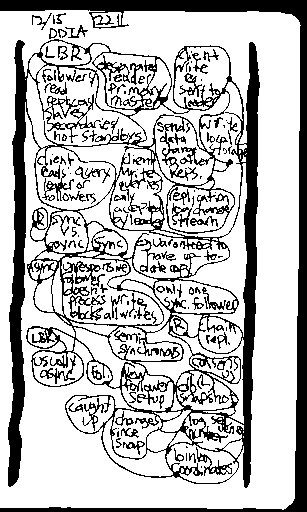 12/15 221
DDIA
LBR
designated
leader
primary
master
client
write
req.
sent to
leader
followers
read
replicas
slaves
secondaries
hot standbys
sends
data
change
to other
reps.
write
local
storage
client
reads: query
leader or
followers
client
write
queries
only
accepted
by leader
replication
log/change
stream
R
sync
vs.
async
sync
guaranteed to
have up-to-
date copy
async
unresponsive
follower
doesn't
process write,
blocks all writes
only one
sync. follower
LBR
usually
async
semi
synchronous
R
chain
repl.
consens.
Fol.
new
follower
setup
snapshot
caught
up
changes
since
snap
log sequence
number
binlog
coordinates